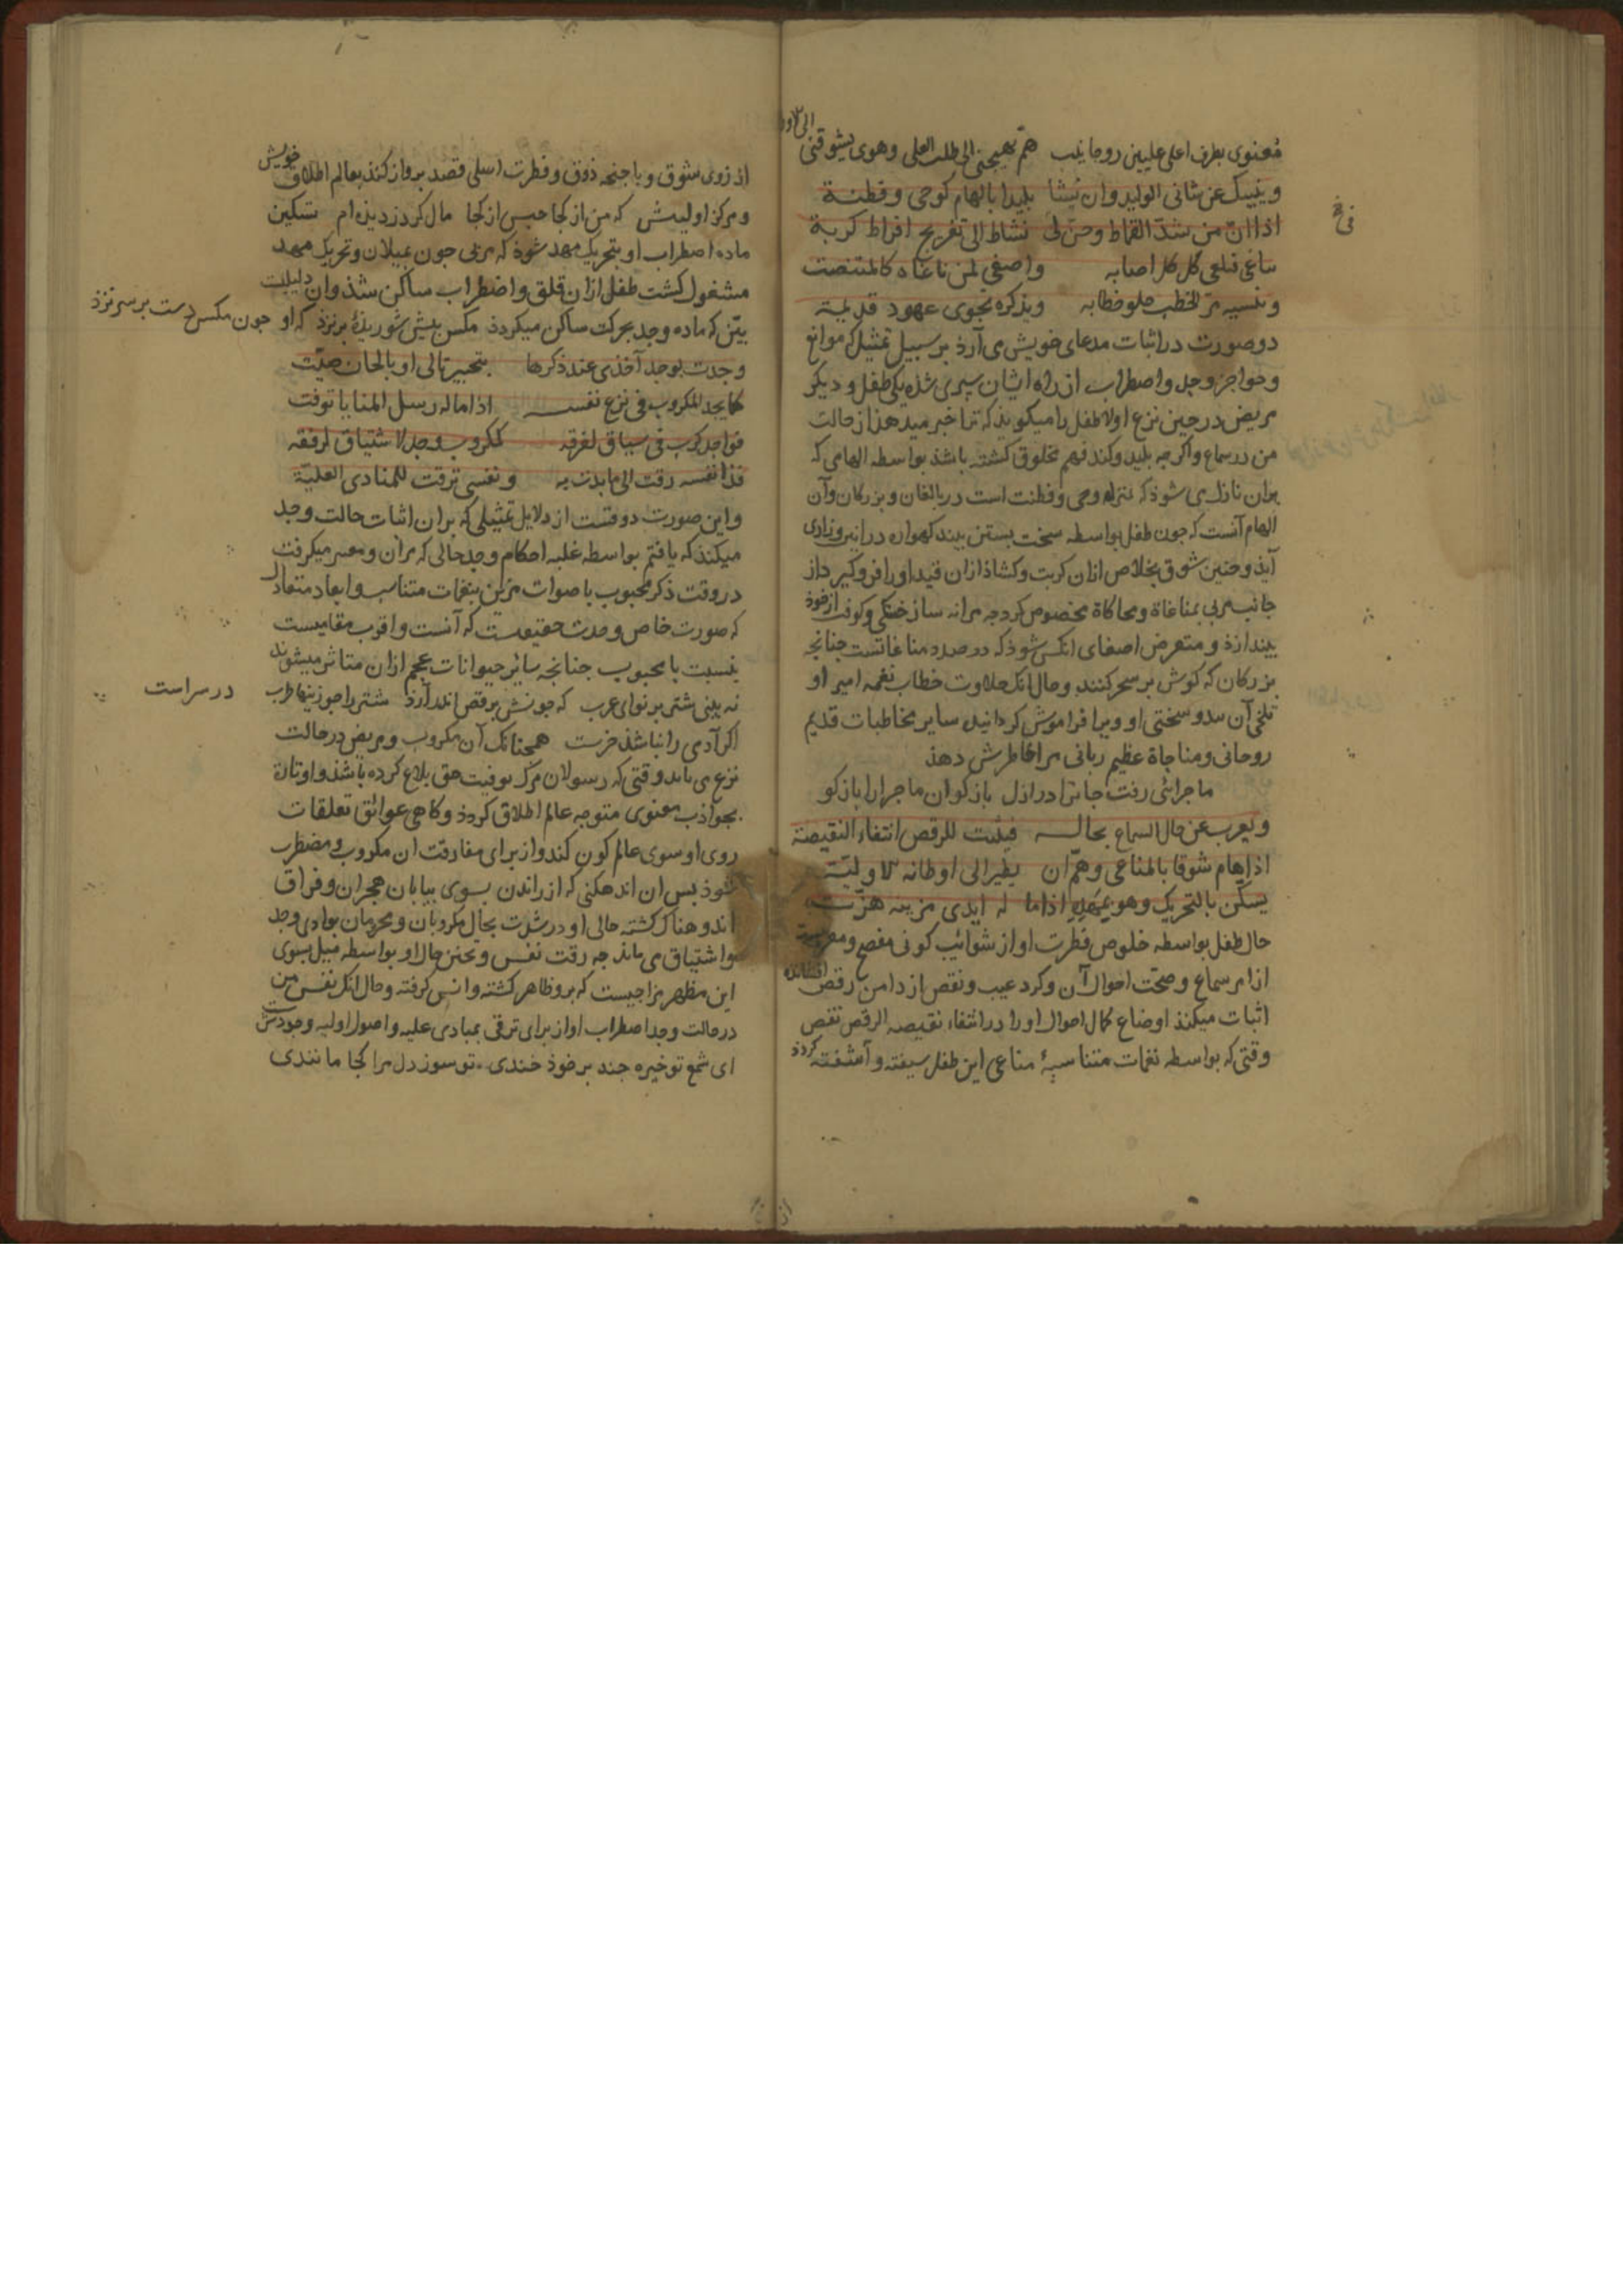 معنوی بطرف اعلی علیین روحا یلب هم یهیجنی الی طلب العلی وهوی یشوقنی الی الاول
وینبیک عن شانی الولید وان نشا بلیدا بالهام کوحی وفطنة
اذا ان من شد القماط وحن لی نشاط الی تفریج افراط کربة
یناغی فیلغی کل کل اصابه واصغی لمن ناغاه کالمتنصت
وینسیه مر الخطب حلو خطابه ویذکره نجوی عهود قدیمة
دو صورت در اثبات مدعای خویش می آرد بر سبیل تمثیل که موانع
وحواجز وجد واضطراب از راه ایشان سپری شده یکی طفل و دیکر
مریض در حین نزع اولا طفل را میکوید که ترا خبر میدهد از حالت
من در سماع واکر چه بلید وکند فهم مخلوق کشته باشد بواسطه الهامی که
بران نازل می شود که بمنزله وحی وفطنت است در بالغان و بزرکان وآن
الهام آنست که چون طفل بواسطه سخت بستن بند کهواره در انین وزاری
آید وحنین شوق بخلاص ازان کربت وکشاد ازان قید اورا فروکیرد از
جانب مربی بمناغاة ومحاکاة مخصوص کردد جه مرانه ساز خستکی وکوفت از خود
بیندازد و متعرض اصغای انکس شود که در صدد مناغاتست چنانچه
بزرکان که کوش بر سحر کنند وحال انک حلاوت خطاب نغمه امیر او
تلخی آن بند وسختی او ویرا فراموش کردانیده سایر مخاطبات قدیم
روحانی ومناجاة عظیم ربانی مرا خاطرش دهد
ماجرائی رفت جانرا در ازل باز کو ان ماجرا را باز کو
ویعرب عن حال السماع بحاله فیثبت للرقص انتفاء النقیصة
اذا هام شوقا بالمناغی وهم ان یطیر الی اوطانه الاولیة
یسکن بالتحریک وهو بمهده اذا ما له ایدی مربیه هزت
حال طفل بواسطه خلوص فطرت او از شوائب کونی مفصح ومعربست
از امر سماع وصحت احوال آن وکرد عیب ونقص از دامن رقص افشانده
اثبات میکند اوضاع کمال احوال اورا در انتفاء نقیصه الرقص نقص
وقتی که بواسطه نغمات متناسبهٔ مناغی این طفل سیفته و آشفته کردد
از روی شوق وباجنحه ذوق وفطرت اصلی قصد پرواز کند بعالم اطلاق خویش
ومرکز اولیش که من از کجا حبس از کجا مال کرا دزدیده ام تسکین
ماده اضطراب او بتحریک مهد شود که مربی جون بمیلان وتحریک مهد
مشغول کشت طفل ازان قلق واضطراب ساکن شد وان دلیلیست
بین که ماده وجد بحرکت ساکن میکردد مکس پیش شوریدهٔ پر نزد که او جون مکس دست بر سر نزد
وجدت بوجد آخذی عند ذکرها بتحبیر تالی او بالحان صیت
کما یجد المکروب فی نزع نفسه اذا ما له رسل المنایا توفت
فواجد کرب فی سیاق لفرقه کمکروب وجد لاشتیاق لرفقه
فذا نفسه رقت الی ما بدت به ونفسی ترقت للمبادی العلیة
واین صورت دوقتست از دلایل تمثیلی که بران اثبات حالت وجد
میکند که یافتم بواسطه غلبه احکام وجد حالی که مرآن ومعسر میکرفت
در وقت ذکر محبوب باصوات مزین بنغمات متناسب وابعاد متعادل
که صورت خاص وحدت حقیقیست که آنست واقرب مقامیست
بنسبت با محبوب چنانچه سائر حیوانات عجم ازان متاثر میشوند
نه بینی شتر بر نوای عرب که جونش برقص اندر آرد شتر را جو زینها طرب در سراست
اکر آدمی را نباشد خرست همچنانک آن مکروب ومریض در حالت
نزع می یابد وقتی که رسولان مرک توفیت حق بلاغ کرده باشد واوتان
بجواذب معنوی متوجه عالم اطلاق کردد وکاهی عوائق تعلقات
روی او سوی عالم کون کند واز برای مفارقت ان مکروب ومضطرب
شود پس ان اندهکنی که از راندن بسوی بیابان هجران وفراق
اندوهناک کشته حالی او در شدت بحال مکروبان ومحرومان بوادی وجد
واشتیاق می ماند جه رقت نفس وتحنن حال او بواسطه میل بسوی
این مظهر مزاجیست که برو ظاهر کشته وانس کرفته وحال انک نفس من
در حالت وجد اضطراب او از برای ترقی بمبادی علیه واصول اولیه وجودش است
ای شمع تو خیره جند بر خوذ خندی تو سوز دل مرا کجا مانندی